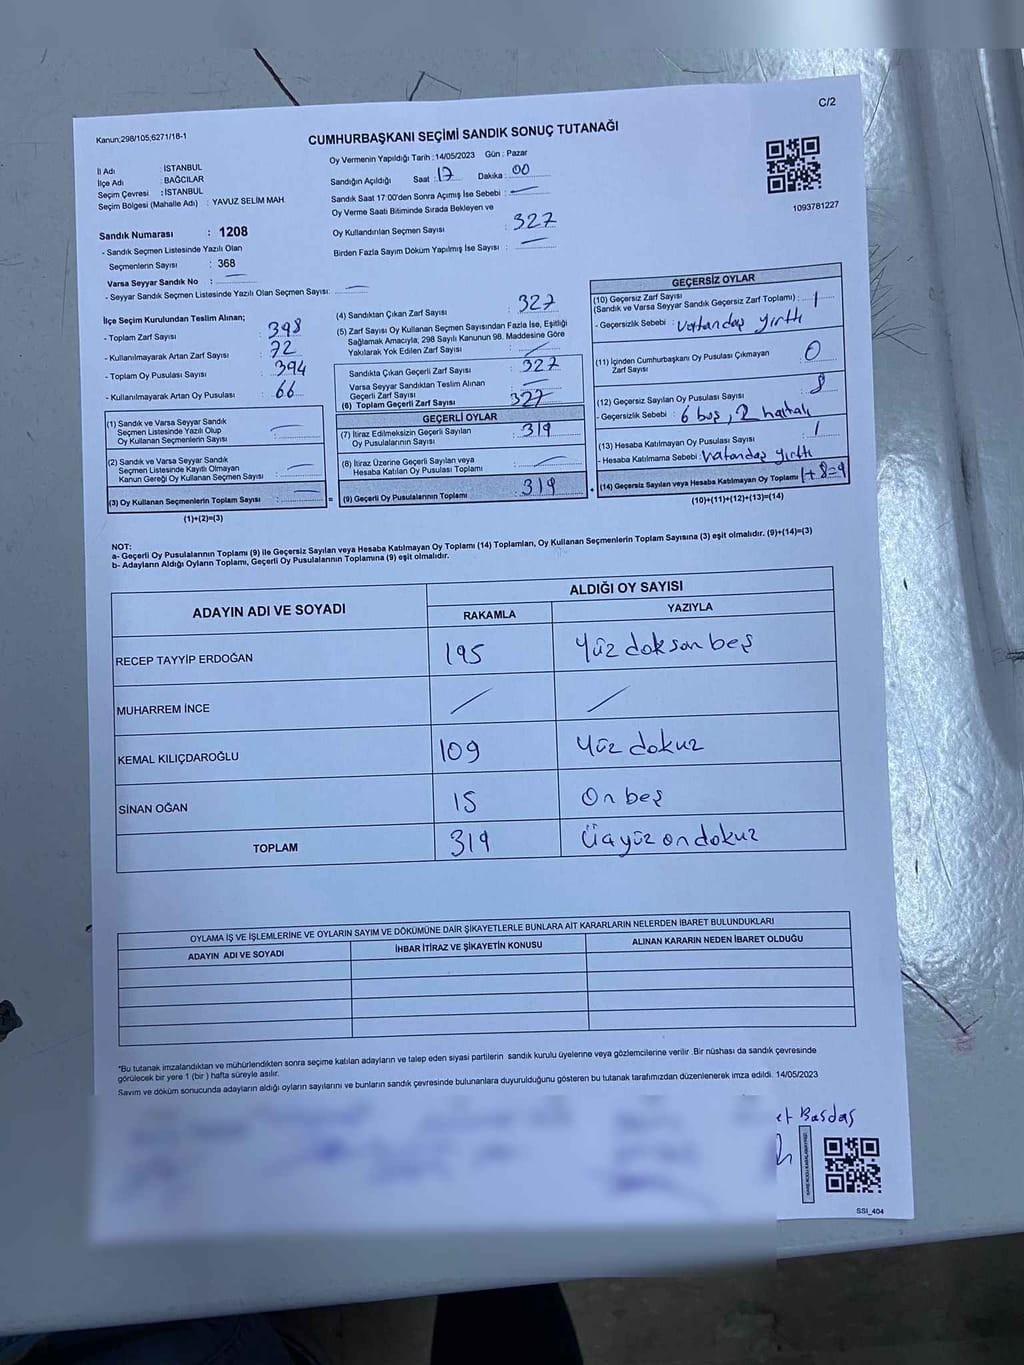 C/2
Kanun:298/105,6271/18-1
CUMHURBAŞKANI SEÇİMİ SANDIK SONUÇ TUTANAĞI
İl Adı : İSTANBUL
İlçe Adı : BAĞCILAR
Seçim Çevresi : İSTANBUL
Seçim Bölgesi (Mahalle Adı) : YAVUZ SELİM MAH
Sandık Numarası : 1208
- Sandık Seçmen Listesinde Yazılı Olan
Seçmenlerin Sayısı : 368
Varsa Seyyar Sandık No :
- Seyyar Sandık Seçmen Listesinde Yazılı Olan Seçmen Sayısı:
Oy Vermenin Yapıldığı Tarih : 14/05/2023 Gün : Pazar
Sandığın Açıldığı Saat : 17 Dakika : 00
Sandık Saat 17:00'den Sonra Açımış İse Sebebi :
Oy Verme Saati Bitiminde Sırada Bekleyen ve
Oy Kullandırılan Seçmen Sayısı : 327
Birden Fazla Sayım Döküm Yapılmış İse Sayısı :
1093781227
İlçe Seçim Kurulundan Teslim Alınan;
- Toplam Zarf Sayısı : 398
- Kullanılmayarak Artan Zarf Sayısı : 72
- Toplam Oy Pusulası Sayısı : 394
- Kullanılmayarak Artan Oy Pusulası : 66
(1) Sandık ve Varsa Seyyar Sandık
Seçmen Listesinde Yazılı Olup
Oy Kullanan Seçmenlerin Sayısı :
(2) Sandık ve Varsa Seyyar Sandık
Seçmen Listesinde Kayıtlı Olmayan
Kanun Gereği Oy Kullanan Seçmen Sayısı :
(3) Oy Kullanan Seçmenlerin Toplam Sayısı :
(1)+(2)=(3)
(4) Sandıktan Çıkan Zarf Sayısı : 327
(5) Zarf Sayısı Oy Kullanan Seçmen Sayısından Fazla İse, Eşitliği
Sağlamak Amacıyla; 298 Sayılı Kanunun 98. Maddesine Göre
Yakılarak Yok Edilen Zarf Sayısı :
Sandıkta Çıkan Geçerli Zarf Sayısı : 327
Varsa Seyyar Sandıktan Teslim Alınan
Geçerli Zarf Sayısı :
(6) Toplam Geçerli Zarf Sayısı : 327
GEÇERLİ OYLAR
(7) İtiraz Edilmeksizin Geçerli Sayılan
Oy Pusulalarının Sayısı : 319
(8) İtiraz Üzerine Geçerli Sayılan veya
Hesaba Katılan Oy Pusulası Toplamı :
= (9) Geçerli Oy Pusulalarının Toplamı : 319 +
GEÇERSİZ OYLAR
(10) Geçersiz Zarf Sayısı
(Sandık ve Varsa Seyyar Sandık Geçersiz Zarf Toplamı) : 1
- Geçersizlik Sebebi : Vatandaş yırttı
(11) İçinden Cumhurbaşkanı Oy Pusulası Çıkmayan
Zarf Sayısı : 0
(12) Geçersiz Sayılan Oy Pusulası Sayısı : 8
- Geçersizlik Sebebi : 6 boş, 2 hatalı
(13) Hesaba Katılmayan Oy Pusulası Sayısı : 1
- Hesaba Katılmama Sebebi : Vatandaş yırttı
(14) Geçersiz Sayılan veya Hesaba Katılmayan Oy Toplamı 1+8=9
(10)+(11)+(12)+(13)=(14)
NOT:
a- Geçerli Oy Pusulalarının Toplamı (9) ile Geçersiz Sayılan veya Hesaba Katılmayan Oy Toplamı (14) Toplamları, Oy Kullanan Seçmenlerin Toplam Sayısına (3) eşit olmalıdır. (9)+(14)=(3)
b- Adayların Aldığı Oyların Toplamı, Geçerli Oy Pusulalarının Toplamına (9) eşit olmalıdır.
ADAYIN ADI VE SOYADI
ALDIĞI OY SAYISI
RAKAMLA YAZIYLA
RECEP TAYYİP ERDOĞAN 195 Yüz doksan beş
MUHARREM İNCE / /
KEMAL KILIÇDAROĞLU 109 Yüz dokuz
SİNAN OĞAN 15 On beş
TOPLAM 319 Üçyüz on dokuz
OYLAMA İŞ VE İŞLEMLERİNE VE OYLARIN SAYIM VE DÖKÜMÜNE DAİR ŞİKAYETLERLE BUNLARA AİT KARARLARIN NELERDEN İBARET BULUNDUKLARI
ADAYIN ADI VE SOYADI İHBAR İTİRAZ VE ŞİKAYETİN KONUSU ALINAN KARARIN NEDEN İBARET OLDUĞU
*Bu tutanak imzalandıktan ve mühürlendikten sonra seçime katılan adayların ve talep eden siyasi partilerin sandık kurulu üyelerine veya gözlemcilerine verilir .Bir nüshası da sandık çevresinde
görülecek bir yere 1 (bir ) hafta süreyle asılır.
Sayım ve döküm sonucunda adayların aldığı oyların sayılarını ve bunların sandık çevresinde bulunanlara duyurulduğunu gösteren bu tutanak tarafımızdan düzenlenerek imza edildi. 14/05/2023
et Başdaş
SSI_404